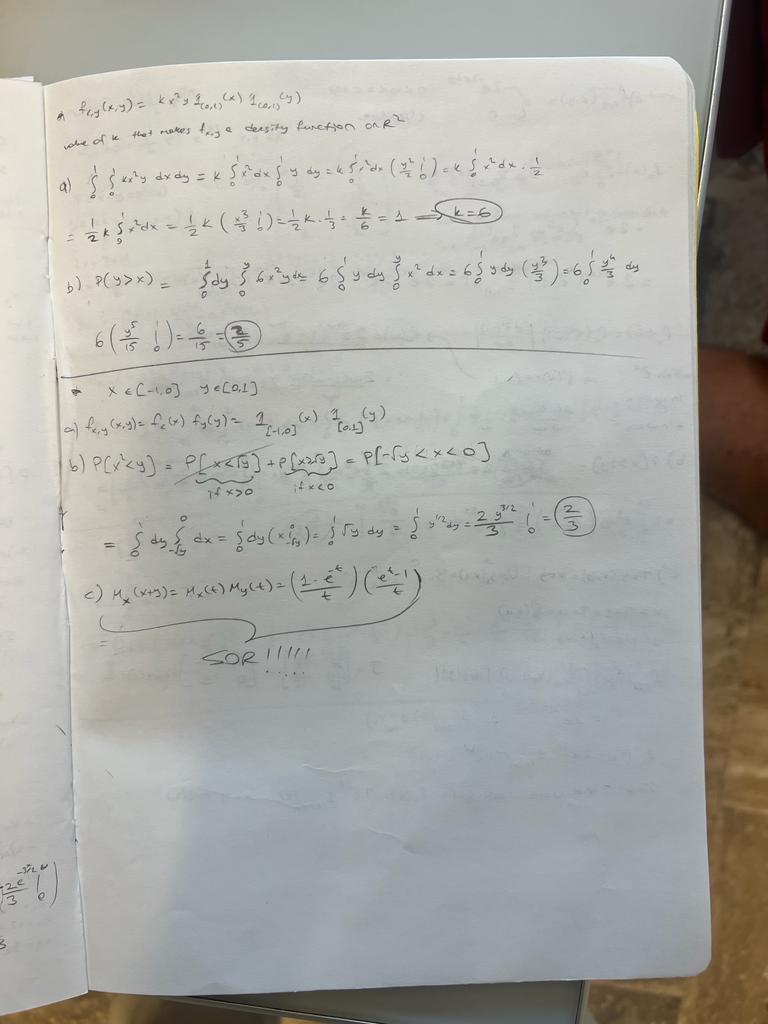 * f_{x,y}(x,y) = kx²y 1_{(0,1)}(x) 1_{(0,1)}(y)
value of k that makes f_{x,y} a density function on R²
a) ∫₀¹ ∫₀¹ kx²y dxdy = k ∫₀¹ x²dx ∫₀¹ y dy = k ∫₀¹ x²dx (y²/2 |₀¹) = k ∫₀¹ x²dx · 1/2
= 1/2 k ∫₀¹ x²dx = 1/2 k (x³/3 |₀¹) = 1/2 k · 1/3 = k/6 = 1 ⟹ k=6
b) P(y>x) = ∫₀¹ dy ∫₀^y 6x²y dx = 6 ∫₀¹ y dy ∫₀^y x² dx = 6 ∫₀¹ y dy (y³/3) = 6 ∫₀¹ y⁴/3 dy
6 (y⁵/15 |₀¹) = 6/15 = 2/5
* x ∈ [-1,0] y ∈ [0,1]
a) f_{x,y}(x,y) = f_x(x) f_y(y) = 1_{[-1,0]}(x) 1_{[0,1]}(y)
b) P[x²<y] = P[x<√y] + P[x≥√y] = P[-√y < x < 0]
if x>0 if x<0
= ∫₀¹ dy ∫_{-√y}^0 dx = ∫₀¹ dy (x|_{-√y}^0) = ∫₀¹ √y dy = ∫₀¹ y^{1/2} dy = 2y^{3/2}/3 |₀¹ = 2/3
c) M_x(x+y) = M_x(t) M_y(t) = (1-e^{-t}/t) (e^t-1/t)
=
SOR!!!!!
2e^{-3/2}/3 |₀)
3